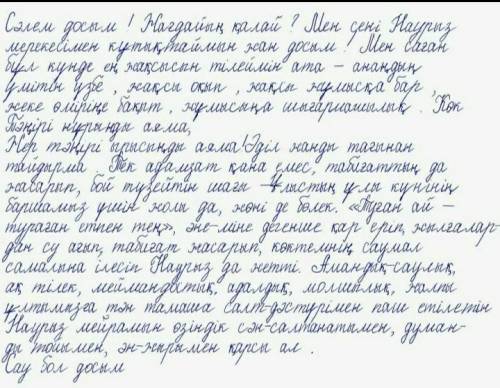 Сәлем досым ! Жағдайың қалай ? Мен сені Наурыз
мерекесімен құтықтаймын жан досым ! Мен саған
бұл күнде ең жақсысын тілеймін ата – анаңдың
үмітін үзбе , жақсы оқып , жақсы жұмысқа бар ,
жеке өміріңе бақыт , жұмысыңа шығармашылық . Көк
Тәңірі нұрыңды аяма,
Жер тәңірі ырысыңды аяма! Әділ жанды тағынан
тайдырма . Тек адамзат қана емес, табиғаттың да
жасарып, бой түзейтін шағы – Ұлыстың ұлы күнінің
баршамыз үшін жолы да, жөні де бөлек. «Туған ай –
тураған етпен тең», әне-міне дегенше қар еріп, жылғалар-
дан су ағып, табиғат жасарып, көктемнің саумал
самалына ілесіп Наурыз да жетті. Амандық-саулық,
ақ тілек, меймандостық, адалдық, молшылық, жалпы
ұлтымызға тән тамаша салт-дәстүрімен паш етілетін
Наурыз мейрамын өзіндік сән-салтанатымен, думан-
ды тойымен, ән-жырымен қарсы ал .
Сау бол досым